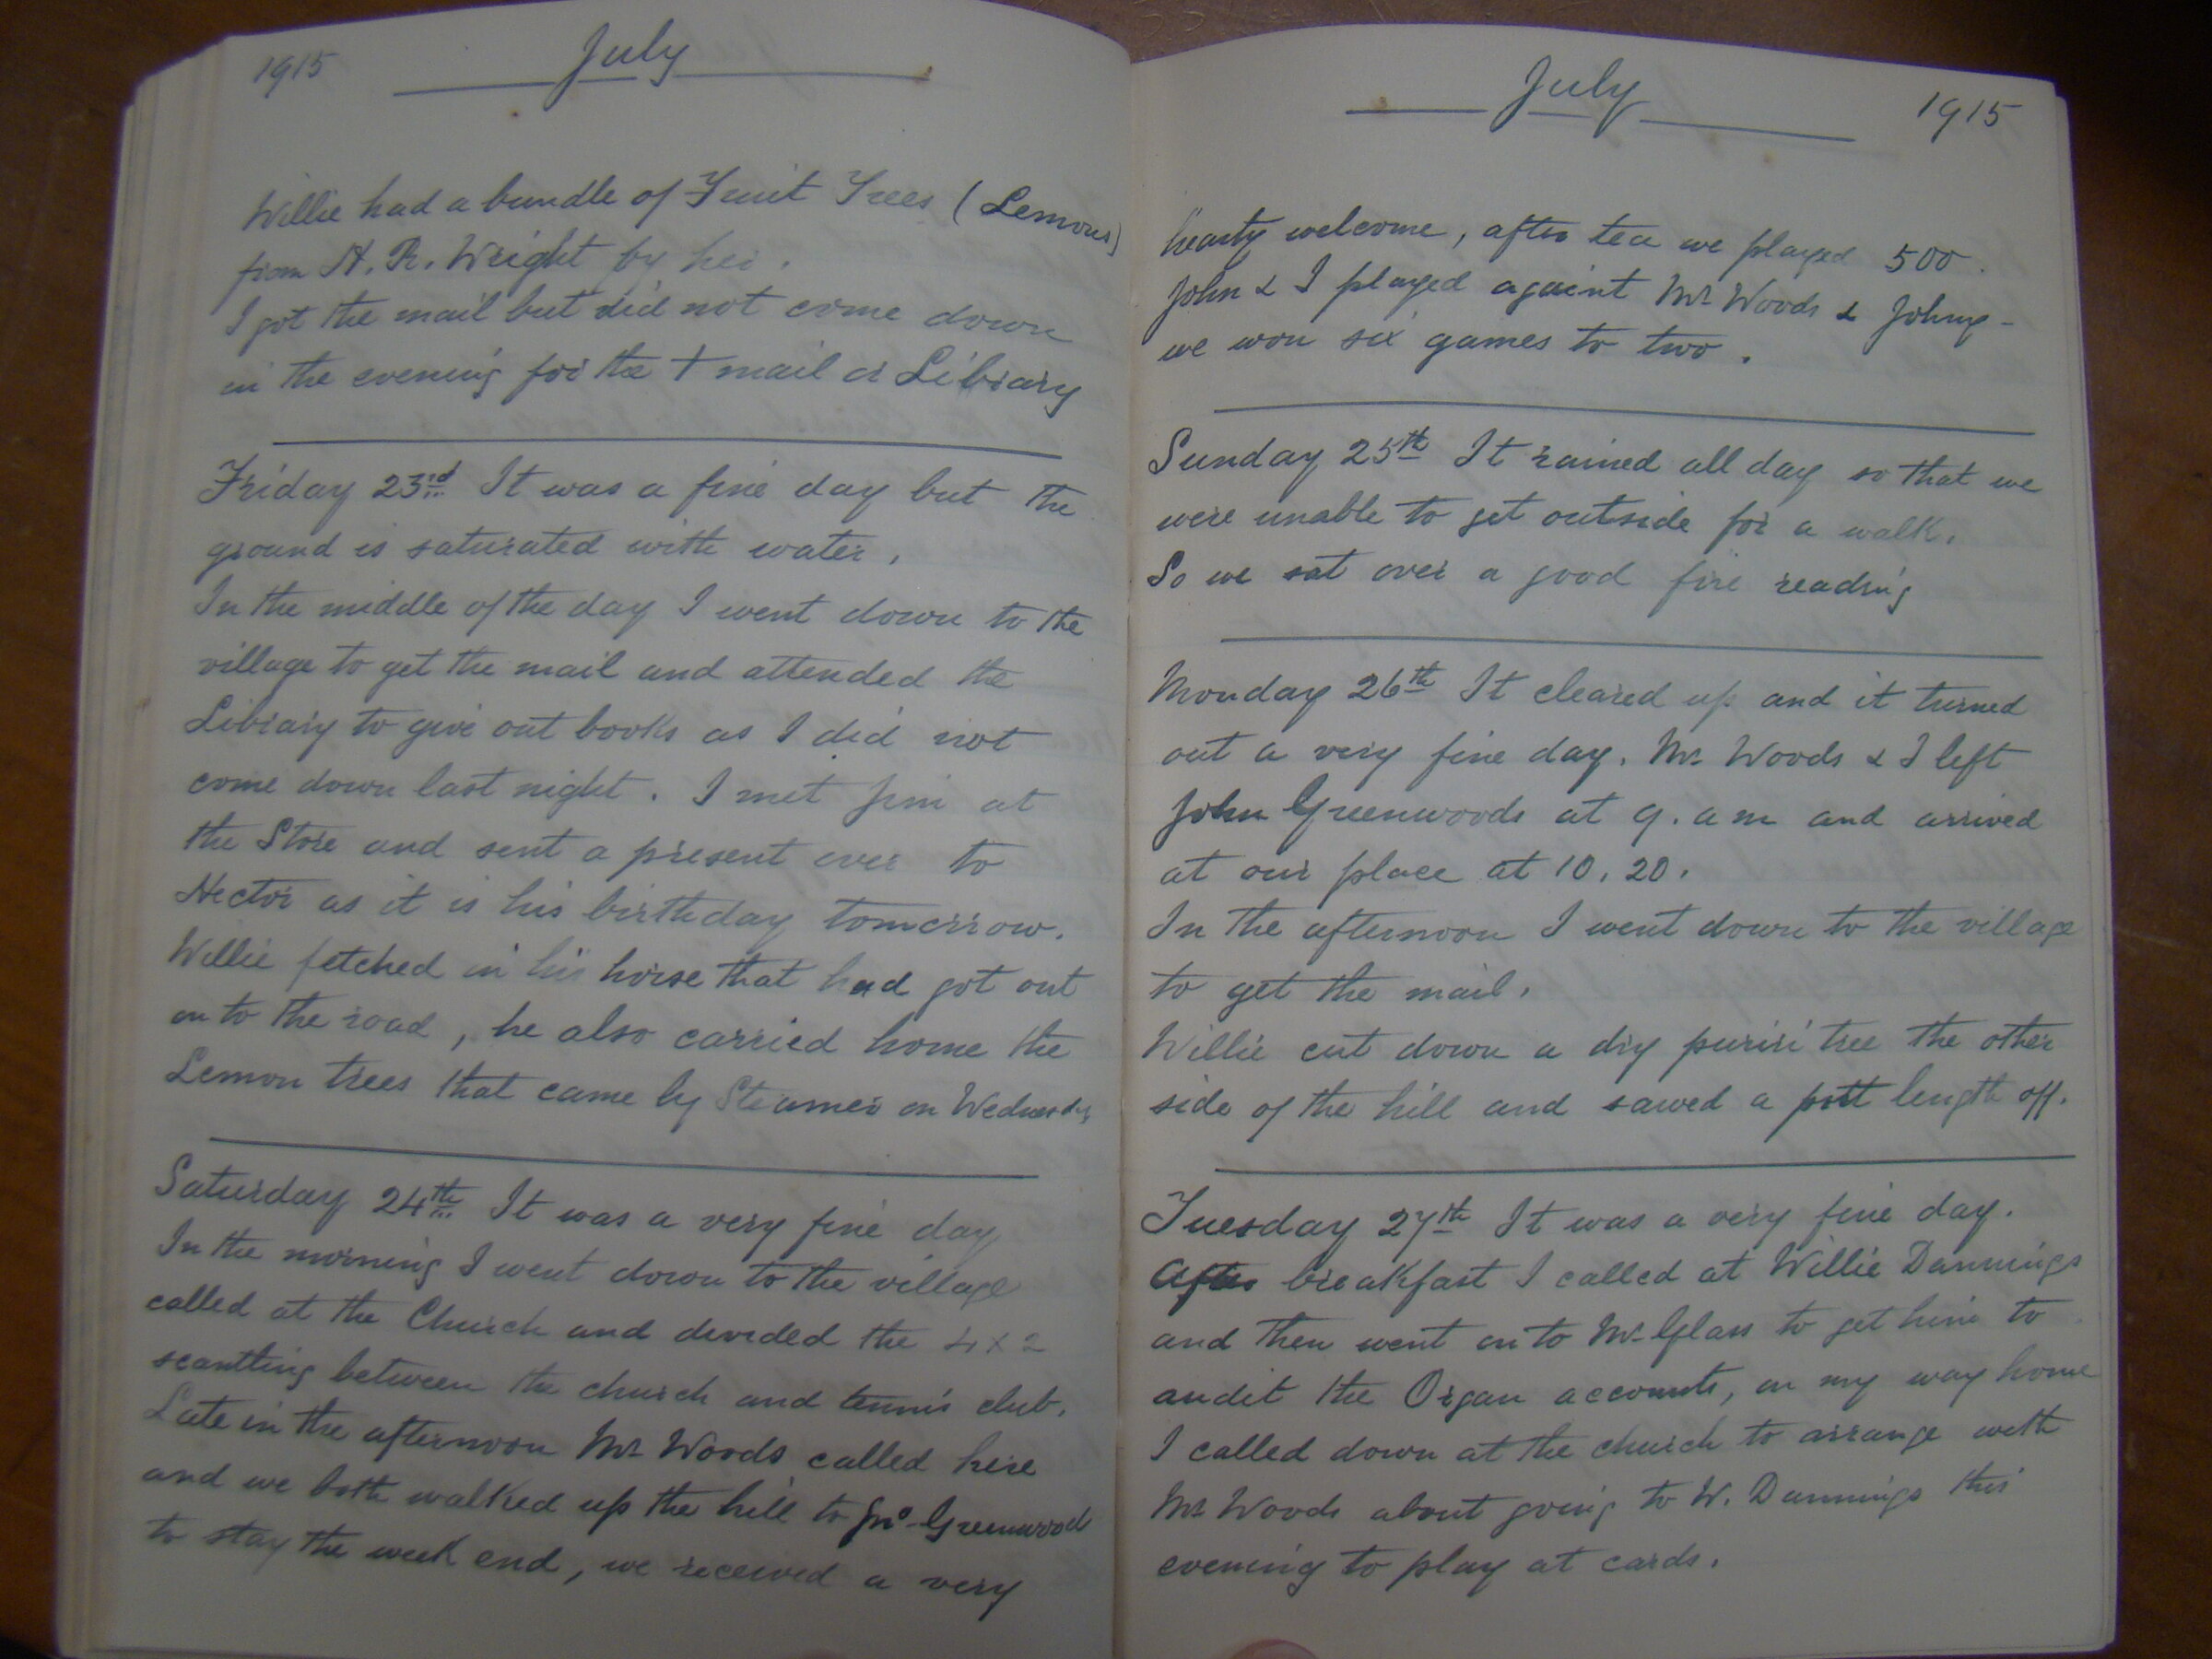 1915 July
Willie had a bundle of Fruit Trees (Lemons)
from H. R. Wright by her.
I got the mail but did not come down
in the evening for the + mail or Library
Friday 23rd It was a fine day but the
ground is saturated with water,
In the middle of the day I went down to the
village to get the mail and attended the
Library to give out books as I did not
come down last night. I met Jim at
the Store and sent a present over to
Hector as it is his birthday tomorrow.
Willie fetched in his horse that had got out
on to the road, he also carried home the
Lemon trees that came by Steamer on Wednesday
Saturday 24th It was a very fine day
In the morning I went down to the village
called at the Church and divided the 4 x 2
scantling between the church and tennis club.
Late in the afternoon Mr Woods called here
and we both walked up the hill to Jno. Greenwood
to stay the week end, we received a very
July 1915
hearty welcome, after tea we played 500.
John & I played againt Mr Woods & Johny -
we won six games to two.
Sunday 25th It rained all day so that we
were unable to get outside for a walk.
So we sat over a good fire reading
Monday 26th It cleared up and it turned
out a very fine day. Mr Woods & I left
John Greenwoods at 9. a m and arrived
at our place at 10.20.
In the afternoon I went down to the village
to get the mail.
Willie cut down a dry puriri tree the other
side of the hill and sawed a post length off.
Tuesday 27th It was a very fine day.
After breakfast I called at Willie Dannings
and then went on to Mr Glass to get him to
audit the Organ accounts, on my way home
I called down at the church to arrange with
Mr Woods about going to W. Dannings this
evening to play at cards.